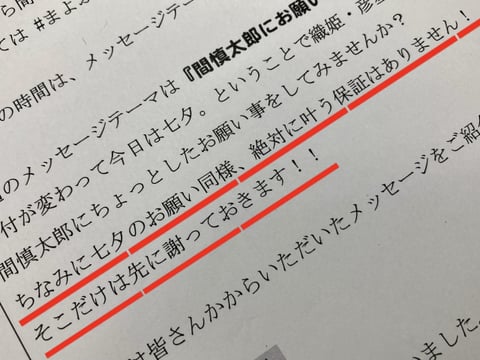 ては #まよ
の時間は、メッセージテーマは『間慎太郎にお願い
のメッセージテーマは
付が変わって今日は七夕。ということで織姫・彦星
間慎太郎にちょっとしたお願い事をしてみませんか?
ちなみに七夕のお願い同様、絶対に叶う保証はありません!
そこだけは先に謝っておきます!!
は皆さんかからいただいたメッセージをご紹介
いました。